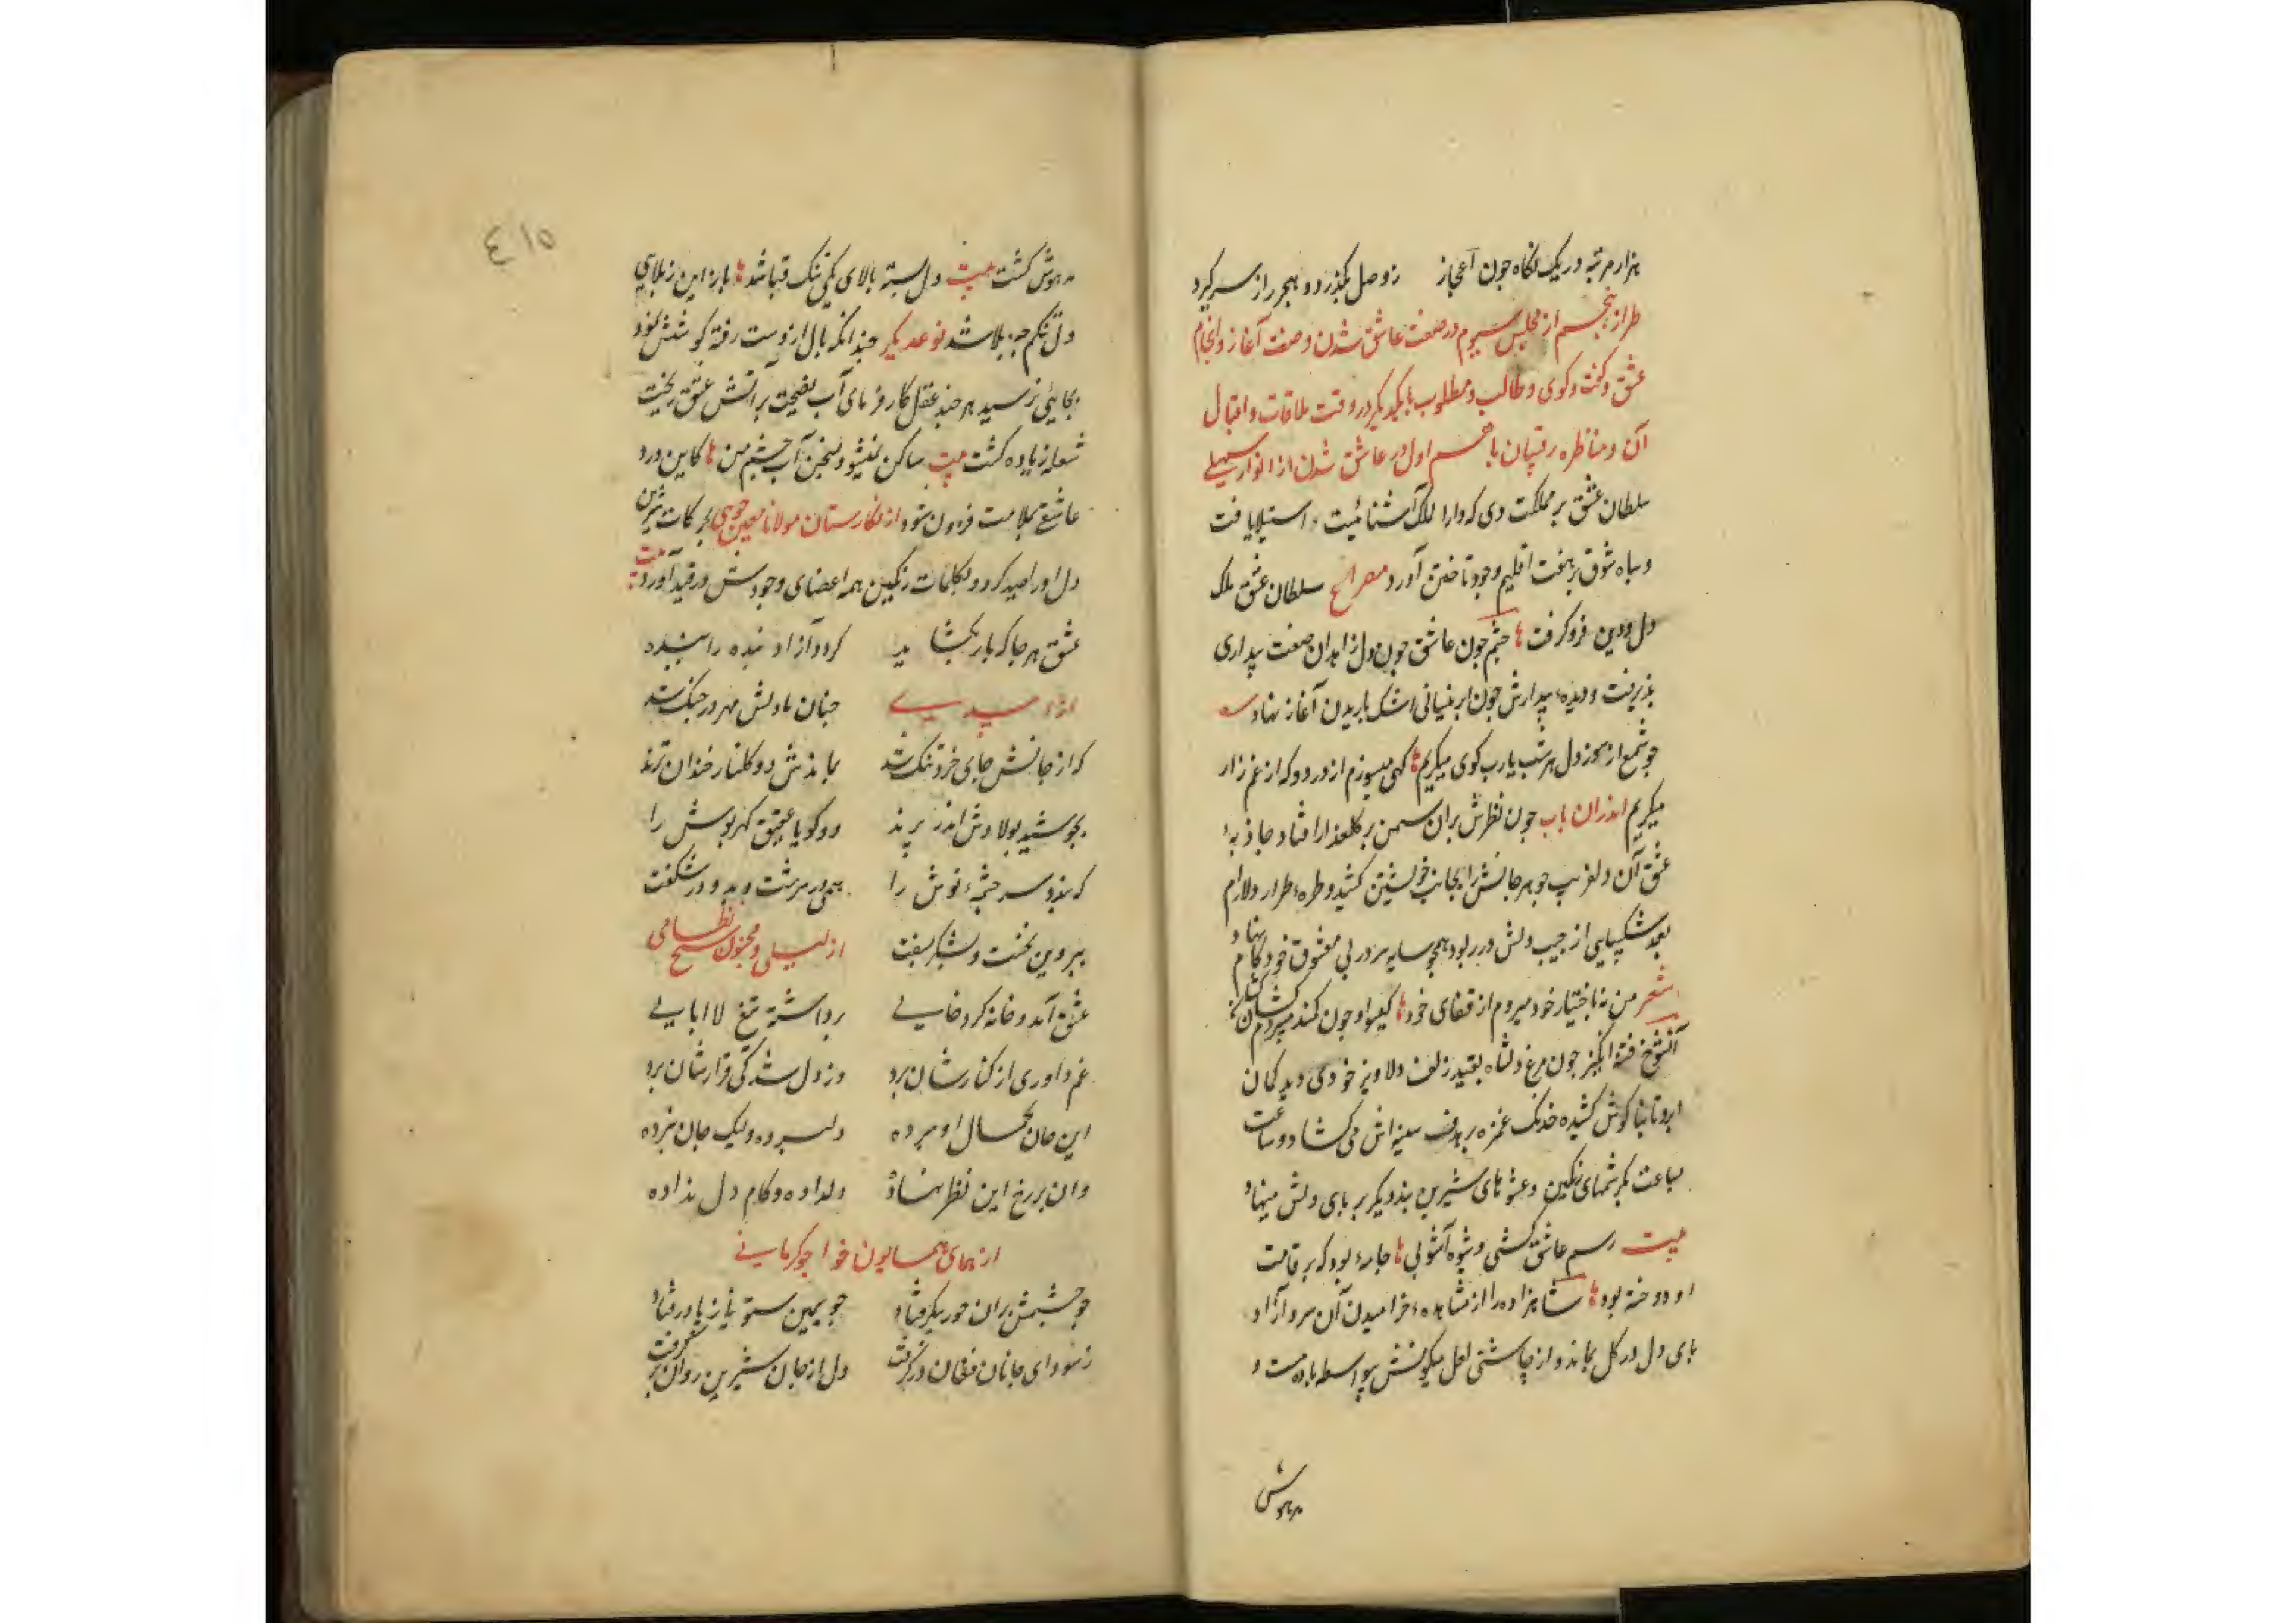 هزار مرتبه در یک نگاه جون اعجاز زوصل بکذرد و هجر راز سر کیرد
طراز پنجم از مجلس سیوم در صفت عاشق شدن و صفت آغاز و انجام
عشق و کفت و کوی و طالب و مطلوب بایکدیکر در وقت ملاقات و اقبال
آن و مناظره رقیبان باهم قسم اول در عاشق شدن از انوار سهیلی
سلطان عشق بر مملکت دی که دارا لملک آشنائیست استیلا یافت
و سپاه شوق بر هفت اقلیم وجود تاختن آورد مصراع سلطان عشق ملک
دل و دین فرو کرفت ها جثم جون عاشق جون دل زاهدان صفت بیداری
پذیرفت و دیده بیدارش جون ابر نیسانی اشک باریدن آغاز نهاد
جو شمع از سوز دل هر شب یارب کوی میکریم ها کهی میسوزم از درد و که از غم زار
میکریم اندران باب جون نظرش بران سمن بر کلعذار افتاد جاذبه
عشق آن دلفریب جوهر جانش را بجانب خویشتن کشید و طره طرار دلارام
نقد شکیبایی از جیب دلش در ربود همجو سایه سر در پی معشوق خود کام نهاد
شعر من نه باختیار خود میروم از قفای خود ها کیسو او جون کمند میبردم کشان کشان
آنشوخ فتنه انکیز جون مرغ دل شاه بقید زلف دلاویز خودی دید کمان
ابرو تا بنا کوش کشیده خدنک غمزه بر هدف سینه اش می کشاد و ساعت
بساعت بکرشمهای نمکین و عشوهای شیرین بند دیکر بر پای دلش مینهاد
بیت رسم عاشق کشی و شیوه آشوبی ها جامه بود که بر قامت
او دوخته بود ها شاهزاده را از مشاهده خرامیدن آن سرو آزاد
پای دل در کل بماند و از چاشنی لعل میکونش بیواسطه باده مست و
مدهوش
٤١٥
مدهوش کشت بیت دل بسته بالای یکی تنک قبا شد ها باز این ز بلای
دل تنکم جه بلا شد نوع دیکر جندانکه بال از دست رفته کوشش نمود
بجائی نرسید هر جند عقل کار فرمای آب نصیحت بر آتش عشق ریخت
شعله زیاده کشت بیت ساکن نمیشود بسخن آب جشم من ها کاین درد
عاشقی بملامت فزون شود از نکارستان مولانا معین جوینی بحرکات شیرین
دل اورا صید کرد و بکلمات رنکین همه اعضای وجودش در قید آورد بیت
عشق هر جا که بار بکشاید کرد آزاد بنده را بنده
جنان با دلش مهر در جنک شد
که از جانش جای خرد تنک شد بماندش دو کلنار خندان نژند
بجوشید پولادش اندر پرند دو کویا عقیق کهر پوش را
که بندد سر جشمه نوش را
ببروین نخست و بشکر سفت از لیلی و مجنون شیخ نظامی
عشق آمد و خانه کرد خالی برداشته تیغ لا ابالی
غم داد و دل از کنارشان برد وز دل شدکی قرارشان برد
این جان بجمال او سپرده دل برده و لیک جان نبرده
وان بر رخ این نظر نهاده دلداده و کام دل نداده
از همای همایون خواجو کرمانی
جو جشمش بران حور پیکر فتاد جو سیمین ستونی ز پا در فتاد
ز سودای جانان فغان در کرفت دل از جان شیرین روان بر کرفت